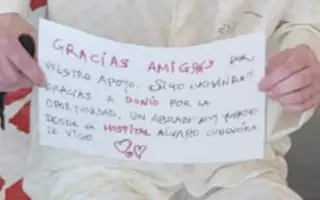 GRACIAS AMIGXS POR
VUESTRO APOYO. SIGO LUCHANDO!!
GRACIAS A DONÍO POR LA
OPORTUNIDAD, UN ABRAZO MUY FUERTE
DESDE EL HOSPITAL ALVARO CUNQUEIRO
DE VIGO